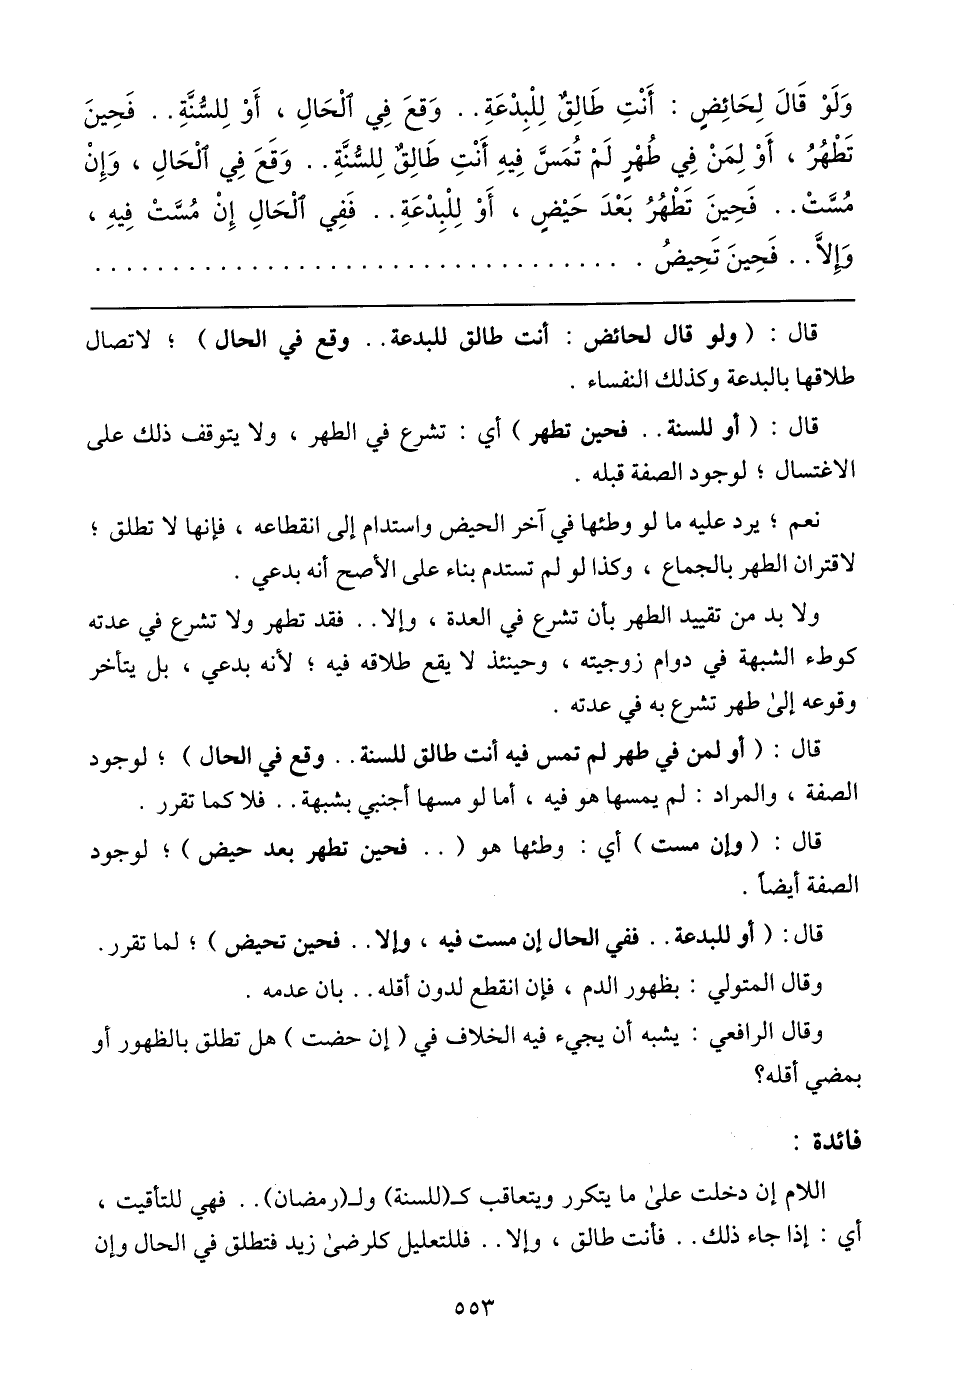 وَلَوْ قَالَ لِحَائِضٍ : أَنْتِ طَالِقٌ لِلْبِدْعَةِ . . وَقَعَ فِي ٱلْحَالِ ، أَوْ لِلسُّنَّةِ . . فَحِينَ
تَطْهُرُ ، أَوْ لِمَنْ فِي طُهْرٍ لَمْ تُمَسَّ فِيهِ أَنْتِ طَالِقٌ لِلسُّنَّةِ . . وَقَعَ فِي ٱلْحَالِ ، وَإِنْ
مُسَّتْ . . فَحِينَ تَطْهُرُ بَعْدَ حَيْضٍ ، أَوْ لِلْبِدْعَةِ . . فَفِي ٱلْحَالِ إِنْ مُسَّتْ فِيهِ ،
وَإِلاَّ . . فَحِينَ تَحِيضُ . . . . . . . . . . . . . . . . . . . . . . . . . . . . . . . . . . .
قال : ( ولو قال لحائض : أنت طالق للبدعة . . وقع في الحال ) ؛ لاتصال
طلاقها بالبدعة وكذلك النفساء .
قال : ( أو للسنة . . فحين تطهر ) أي : تشرع في الطهر ، ولا يتوقف ذلك على
الاغتسال ؛ لوجود الصفة قبله .
نعم ؛ يرد عليه ما لو وطئها في آخر الحيض واستدام إلى انقطاعه ، فإنها لا تطلق ؛
لاقتران الطهر بالجماع ، وكذا لو لم تستدم بناء على الأصح أنه بدعي .
ولا بد من تقييد الطهر بأن تشرع في العدة ، وإلا . . فقد تطهر ولا تشرع في عدته
كوطء الشبهة في دوام زوجيته ، وحينئذ لا يقع طلاقه فيه ؛ لأنه بدعي ، بل يتأخر
وقوعه إلىٰ طهر تشرع به في عدته .
قال : ( أو لمن في طهر لم تمس فيه أنت طالق للسنة . . وقع في الحال ) ؛ لوجود
الصفة ، والمراد : لم يمسها هو فيه ، أما لو مسها أجنبي بشبهة . . فلا كما تقرر .
قال : ( وإن مست ) أي : وطئها هو ( . . فحين تطهر بعد حيض ) ؛ لوجود
الصفة أيضاً .
قال : ( أو للبدعة . . ففي الحال إن مست فيه ، وإلا . . فحين تحيض ) ؛ لما تقرر .
وقال المتولي : بظهور الدم ، فإن انقطع لدون أقله . . بان عدمه .
وقال الرافعي : يشبه أن يجيء فيه الخلاف في ( إن حضت ) هل تطلق بالظهور أو
بمضي أقله؟
فائدة :
اللام إن دخلت علىٰ ما يتكرر ويتعاقب كـ(للسنة) ولـ(رمضان) . . فهي للتأقيت ،
أي : إذا جاء ذلك . . فأنت طالق ، وإلا . . فللتعليل كلرضىٰ زيد فتطلق في الحال وإن
٥٥٣